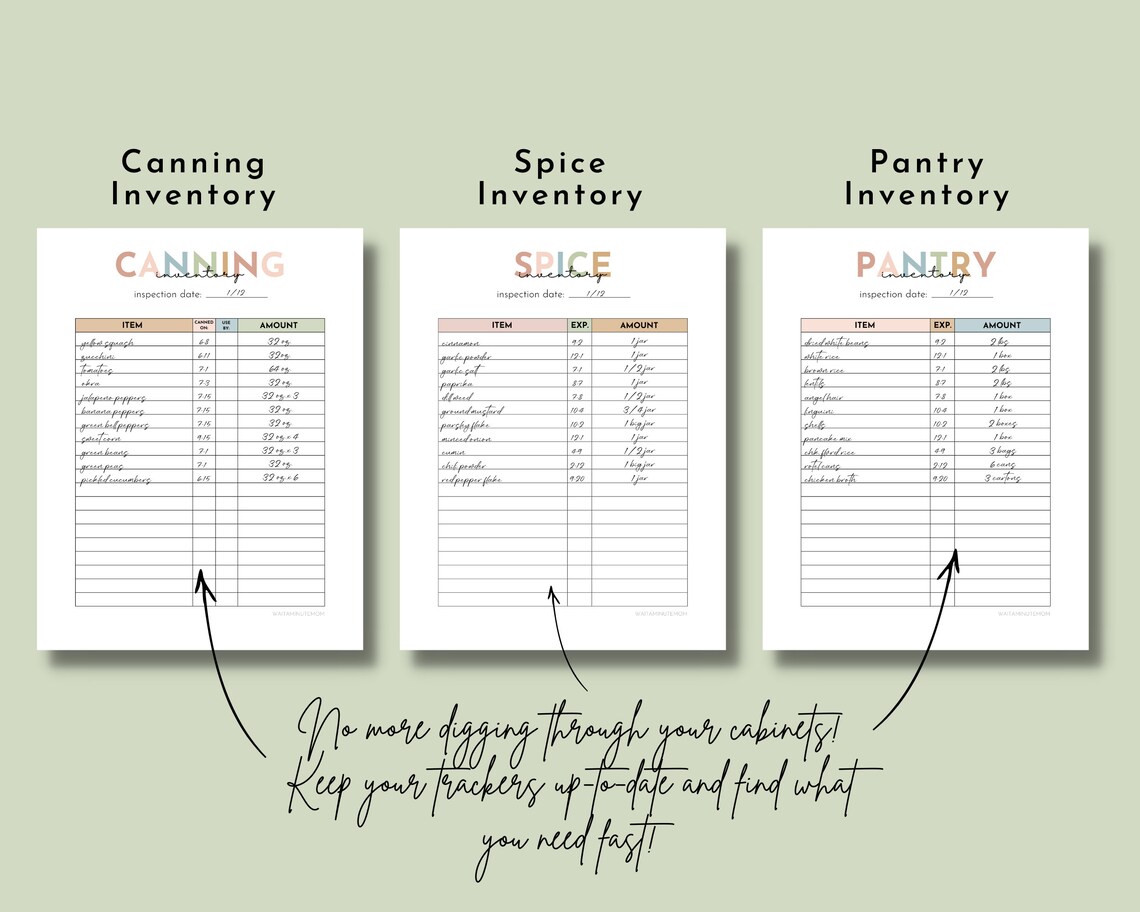 Canning
Inventory
CANNING
inventory
inspection date: 1/12
ITEM CANNED ON: USE BY: AMOUNT
yellow squash 6.8 32 oz.
zucchini 6.11 32 oz.
tomatoes 7.1 64 oz.
okra 7.3 32 oz.
jalapeno peppers 7.15 32 oz. x 3
banana peppers 7.15 32 oz.
green bell peppers 7.15 32 oz.
sweet corn 9.15 32 oz. x 4
green beans 7.1 32 oz. x 3
green peas 7.1 32 oz.
pickled cucumbers 6.15 32 oz. x 6
WAITAMINUTEMOM
Spice
Inventory
SPICE
inventory
inspection date: 1/12
ITEM EXP. AMOUNT
cinnamon 9.2 1 jar
garlic powder 12.1 1 jar
garlic salt 7.1 1/2 jar
paprika 8.7 1 jar
dill weed 7.8 1/2 jar
ground mustard 10.4 3/4 jar
parsley flake 10.2 1 big jar
minced onion 12.1 1 jar
cumin 4.9 1/2 jar
chili powder 2.12 1 big jar
red pepper flake 9.20 1 jar
WAITAMINUTEMOM
Pantry
Inventory
PANTRY
inventory
inspection date: 1/12
ITEM EXP. AMOUNT
dried white beans 9.2 2 lbs
white rice 12.1 1 box
brown rice 7.1 2 lbs
lentils 8.7 2 lbs
angel hair 7.8 1 box
linguini 10.4 1 box
shells 10.2 2 boxes
pancake mix 12.1 1 box
chk flvrd rice 4.9 3 bags
rotel cans 2.12 6 cans
chicken broth 9.20 3 cartons
WAITAMINUTEMOM
No more digging through your cabinets!
Keep your trackers up-to-date and find what
you need fast!